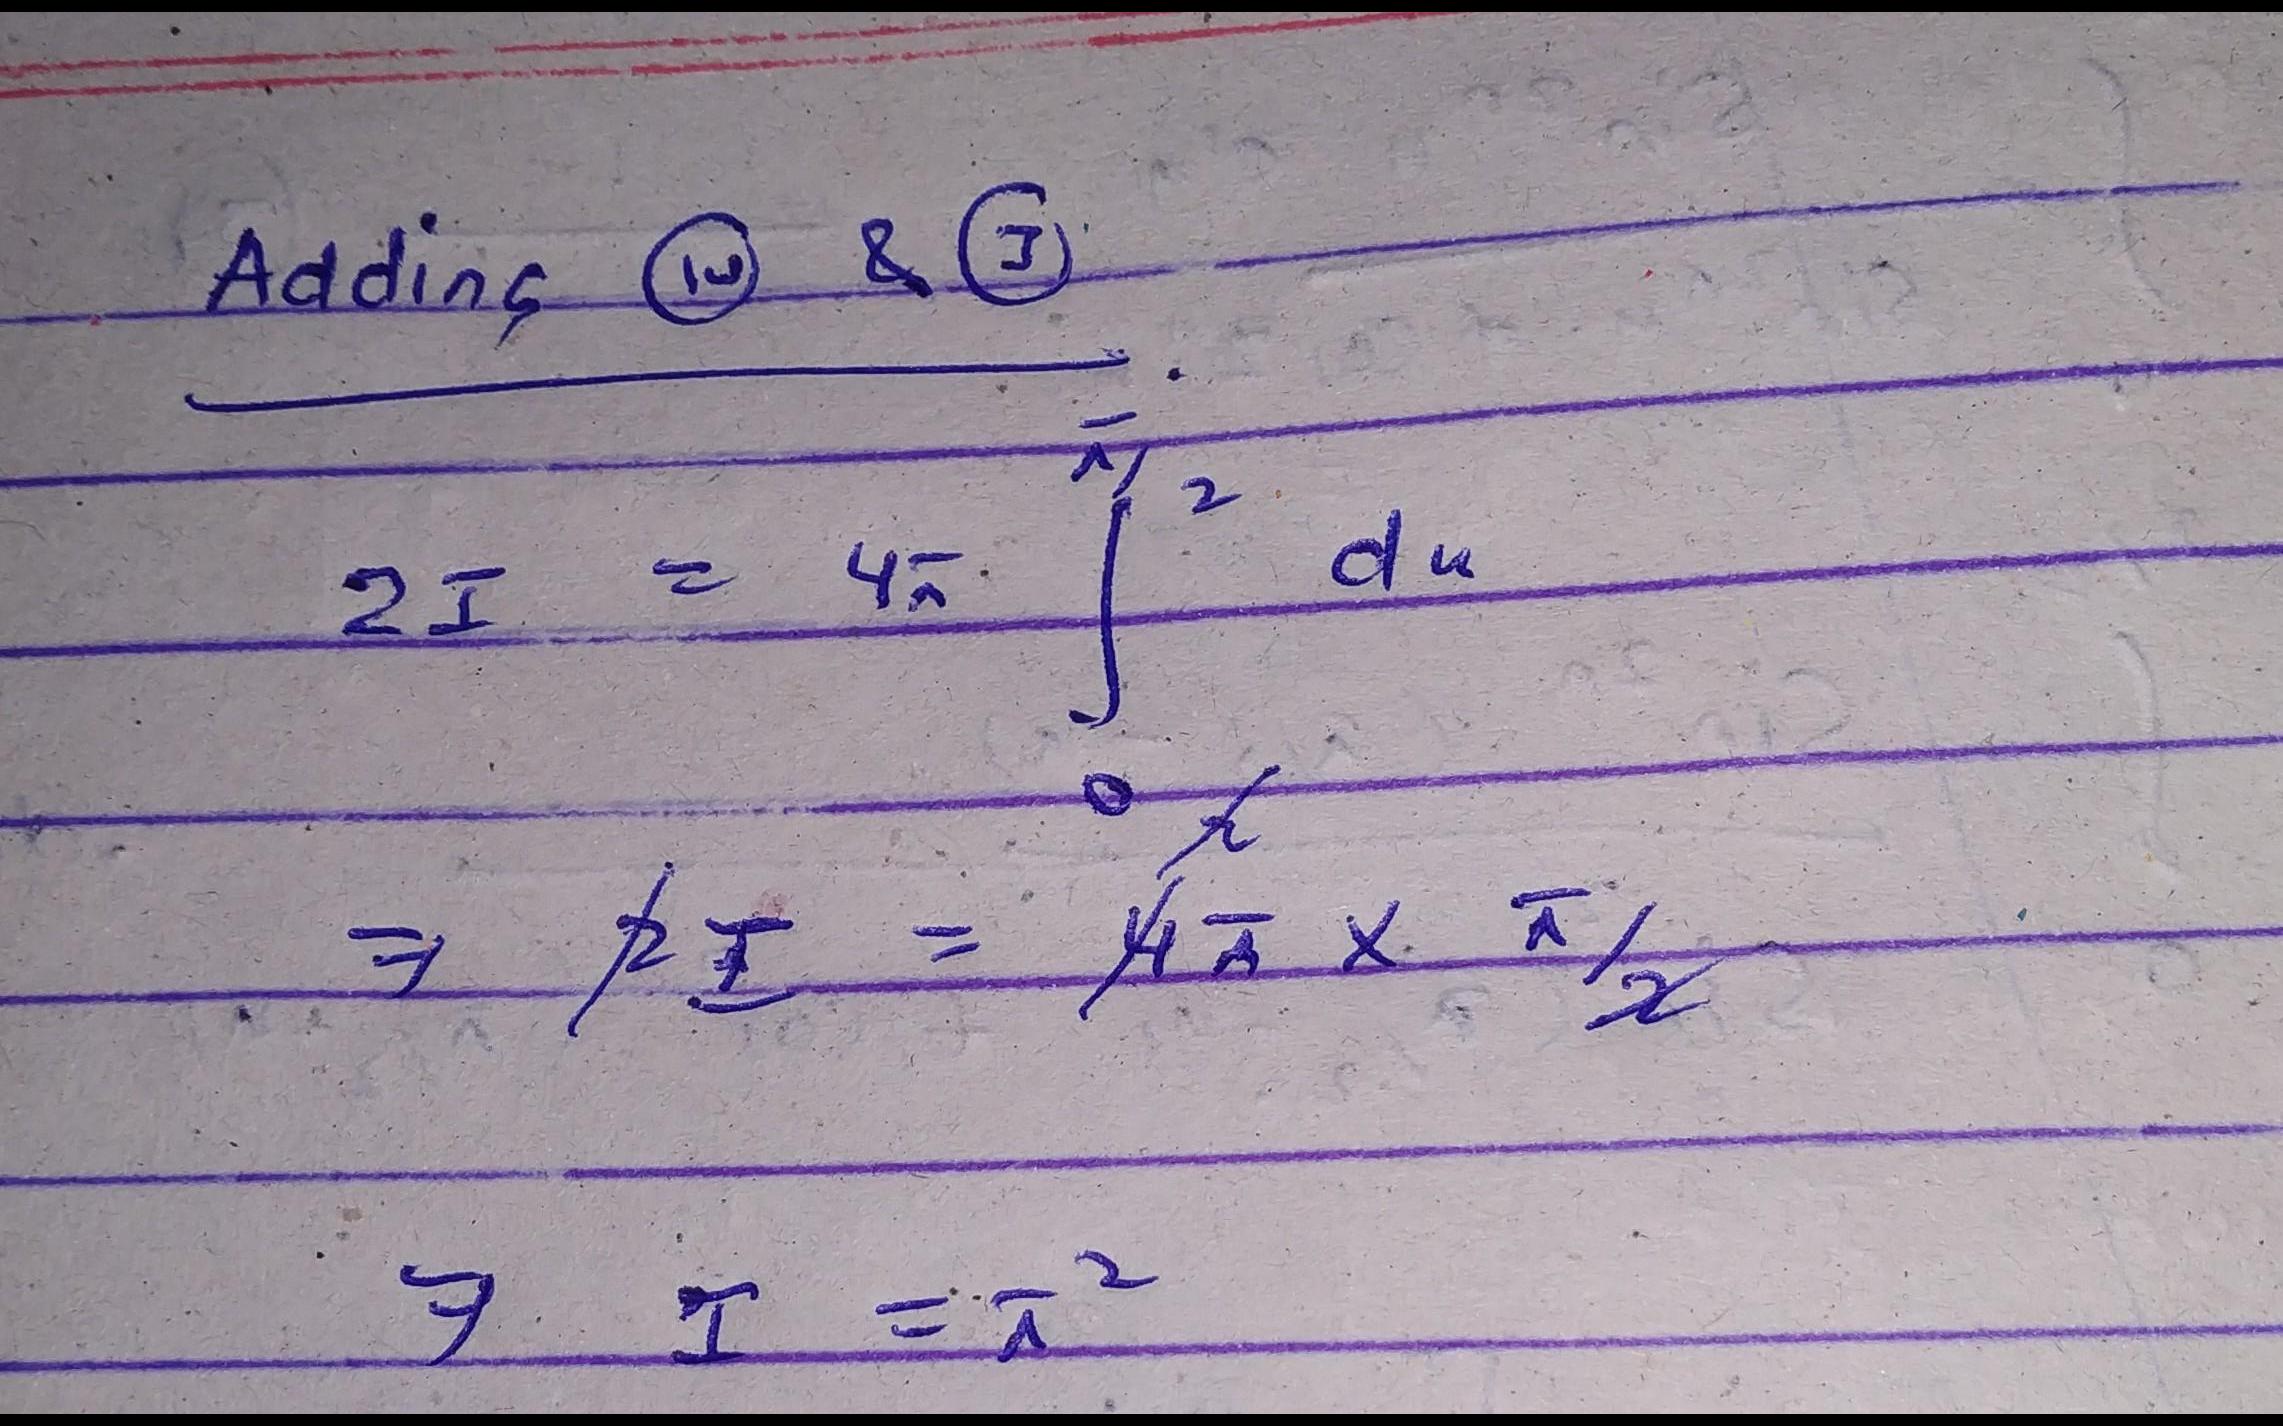 Adding (iv) & (I)
2I = 4π ∫₀^(π/2) du
⇒ 2I = 4π × π/2 2
⇒ I = π²